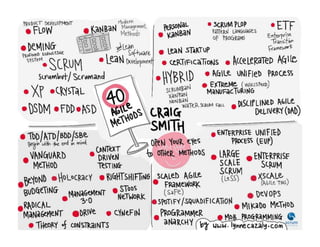 PRODUCT DEVELOPMENT
FLOW
KANBAN
Modern
Management
Methods
DEMING
PROFOUND KNOWLEDGE
SYSTEM
SCRUM
Scrumban/Scrumand
LEAN
Lean
Software
Development
XP
CRYSTAL
DSDM
FDD
ASD
PERSONAL
KANBAN
SCRUM PLOP
PATTERN LANGUAGES
OF PROGRAMS
ETF
Enterprise
Transition
Framework
LEAN STARTUP
CERTIFICATIONS
ACCELERATED AGILE
HYBRID
SCRUMBAN
XANBAN
NANBAN
WATER SCRUM FALL
AGILE UNIFIED PROCESS
EXTREME (WIKISPEED)
MANUFACTURING
DISCIPLINED AGILE
DELIVERY (DAD)
40
AGILE
METHODS
CRAIG
SMITH
OPEN YOUR EYES
to OTHER METHODS
TDD/ATDD/BDD/SBE
Begin with the end in mind
VANGUARD
METHOD
CONTEXT
DRIVEN
TESTING
BEYOND
BUDGETING
HOLOCRACY
RIGHTSHIFTING
MANAGEMENT
3.0
STOOS
NETWORK
RADICAL
MANAGEMENT
DRIVE
CYNEFIN
THEORY of CONSTRAINTS
ENTERPRISE UNIFIED
PROCESS (EUP)
LARGE
SCALE
SCRUM
(LeSS)
ENTERPRISE
SCRUM
SCALED AGILE
FRAMEWORK
(SAFe)
XSCALE
(AGILE TNG)
DEVOPS
SPOTIFY/SQUADIFICATION
MIKADO METHOD
PROGRAMMER
ANARCHY
MOB PROGRAMMING
by www.lynnecazaly.com